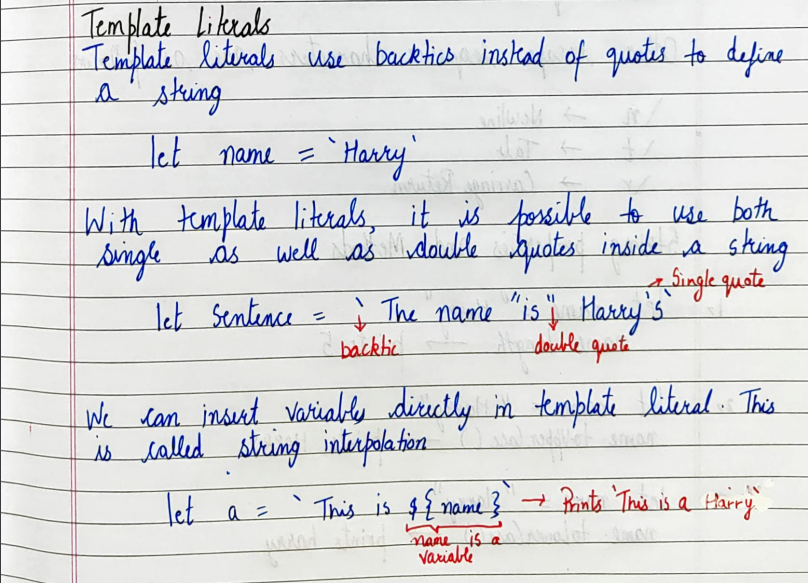 Template Literals
Template literals use backtics instead of quotes to define
a string
let name = `Harry`
With template literals, it is possible to use both
single as well as double quotes inside a string
Single quote
let Sentence = ` The name "is" Harry's`
backtic double quote
We can insert variable directly in template literal. This
is called string interpolation
let a = ` This is ${name}` → Prints 'This is a Harry`
name is a
variable